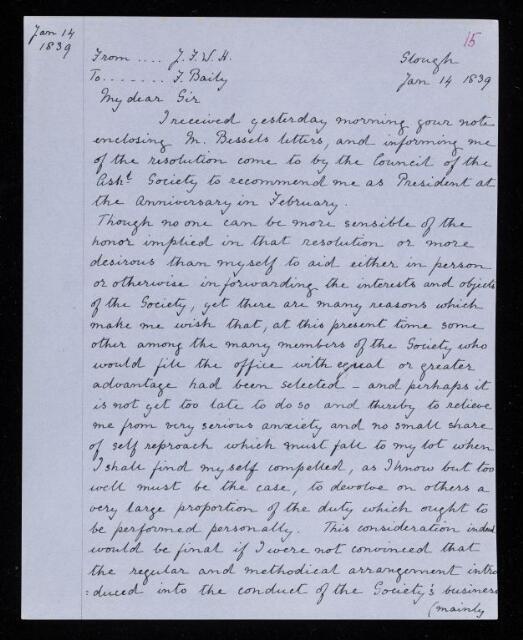 Jan 14
1839
15
From .... J. F. W. H.
Slough
To ....... F. Baily
Jan 14 1839
My dear Sir
I received yesterday morning your note
enclosing M. Bessels letters, and informing me
of the resolution come to by the Council of the
Ast! Society to recommend me as President at
the Anniversary in February.
Though no one can be more sensible of the
honor implied in that resolution or more
desirous than myself to aid either in person
or otherwise in forwarding the interests and objects
of the Society, yet there are many reasons which
make me wish that, at this present time some
other among the many members of the Society who
would fill the office with equal or greater
advantage had been selected – and perhaps it
is not yet too late to do so and thereby to relieve
me from very serious anxiety and no small share
of self reproach which must fall to my lot when
I shall find myself compelled, as I know but too
well must be the case, to devolve on others a
very large proportion of the duty which ought to
be performed personally. This consideration indeed
would be final if I were not convinced that
the regular and methodical arrangement intro
:duced into the conduct of the Society's business
(mainly